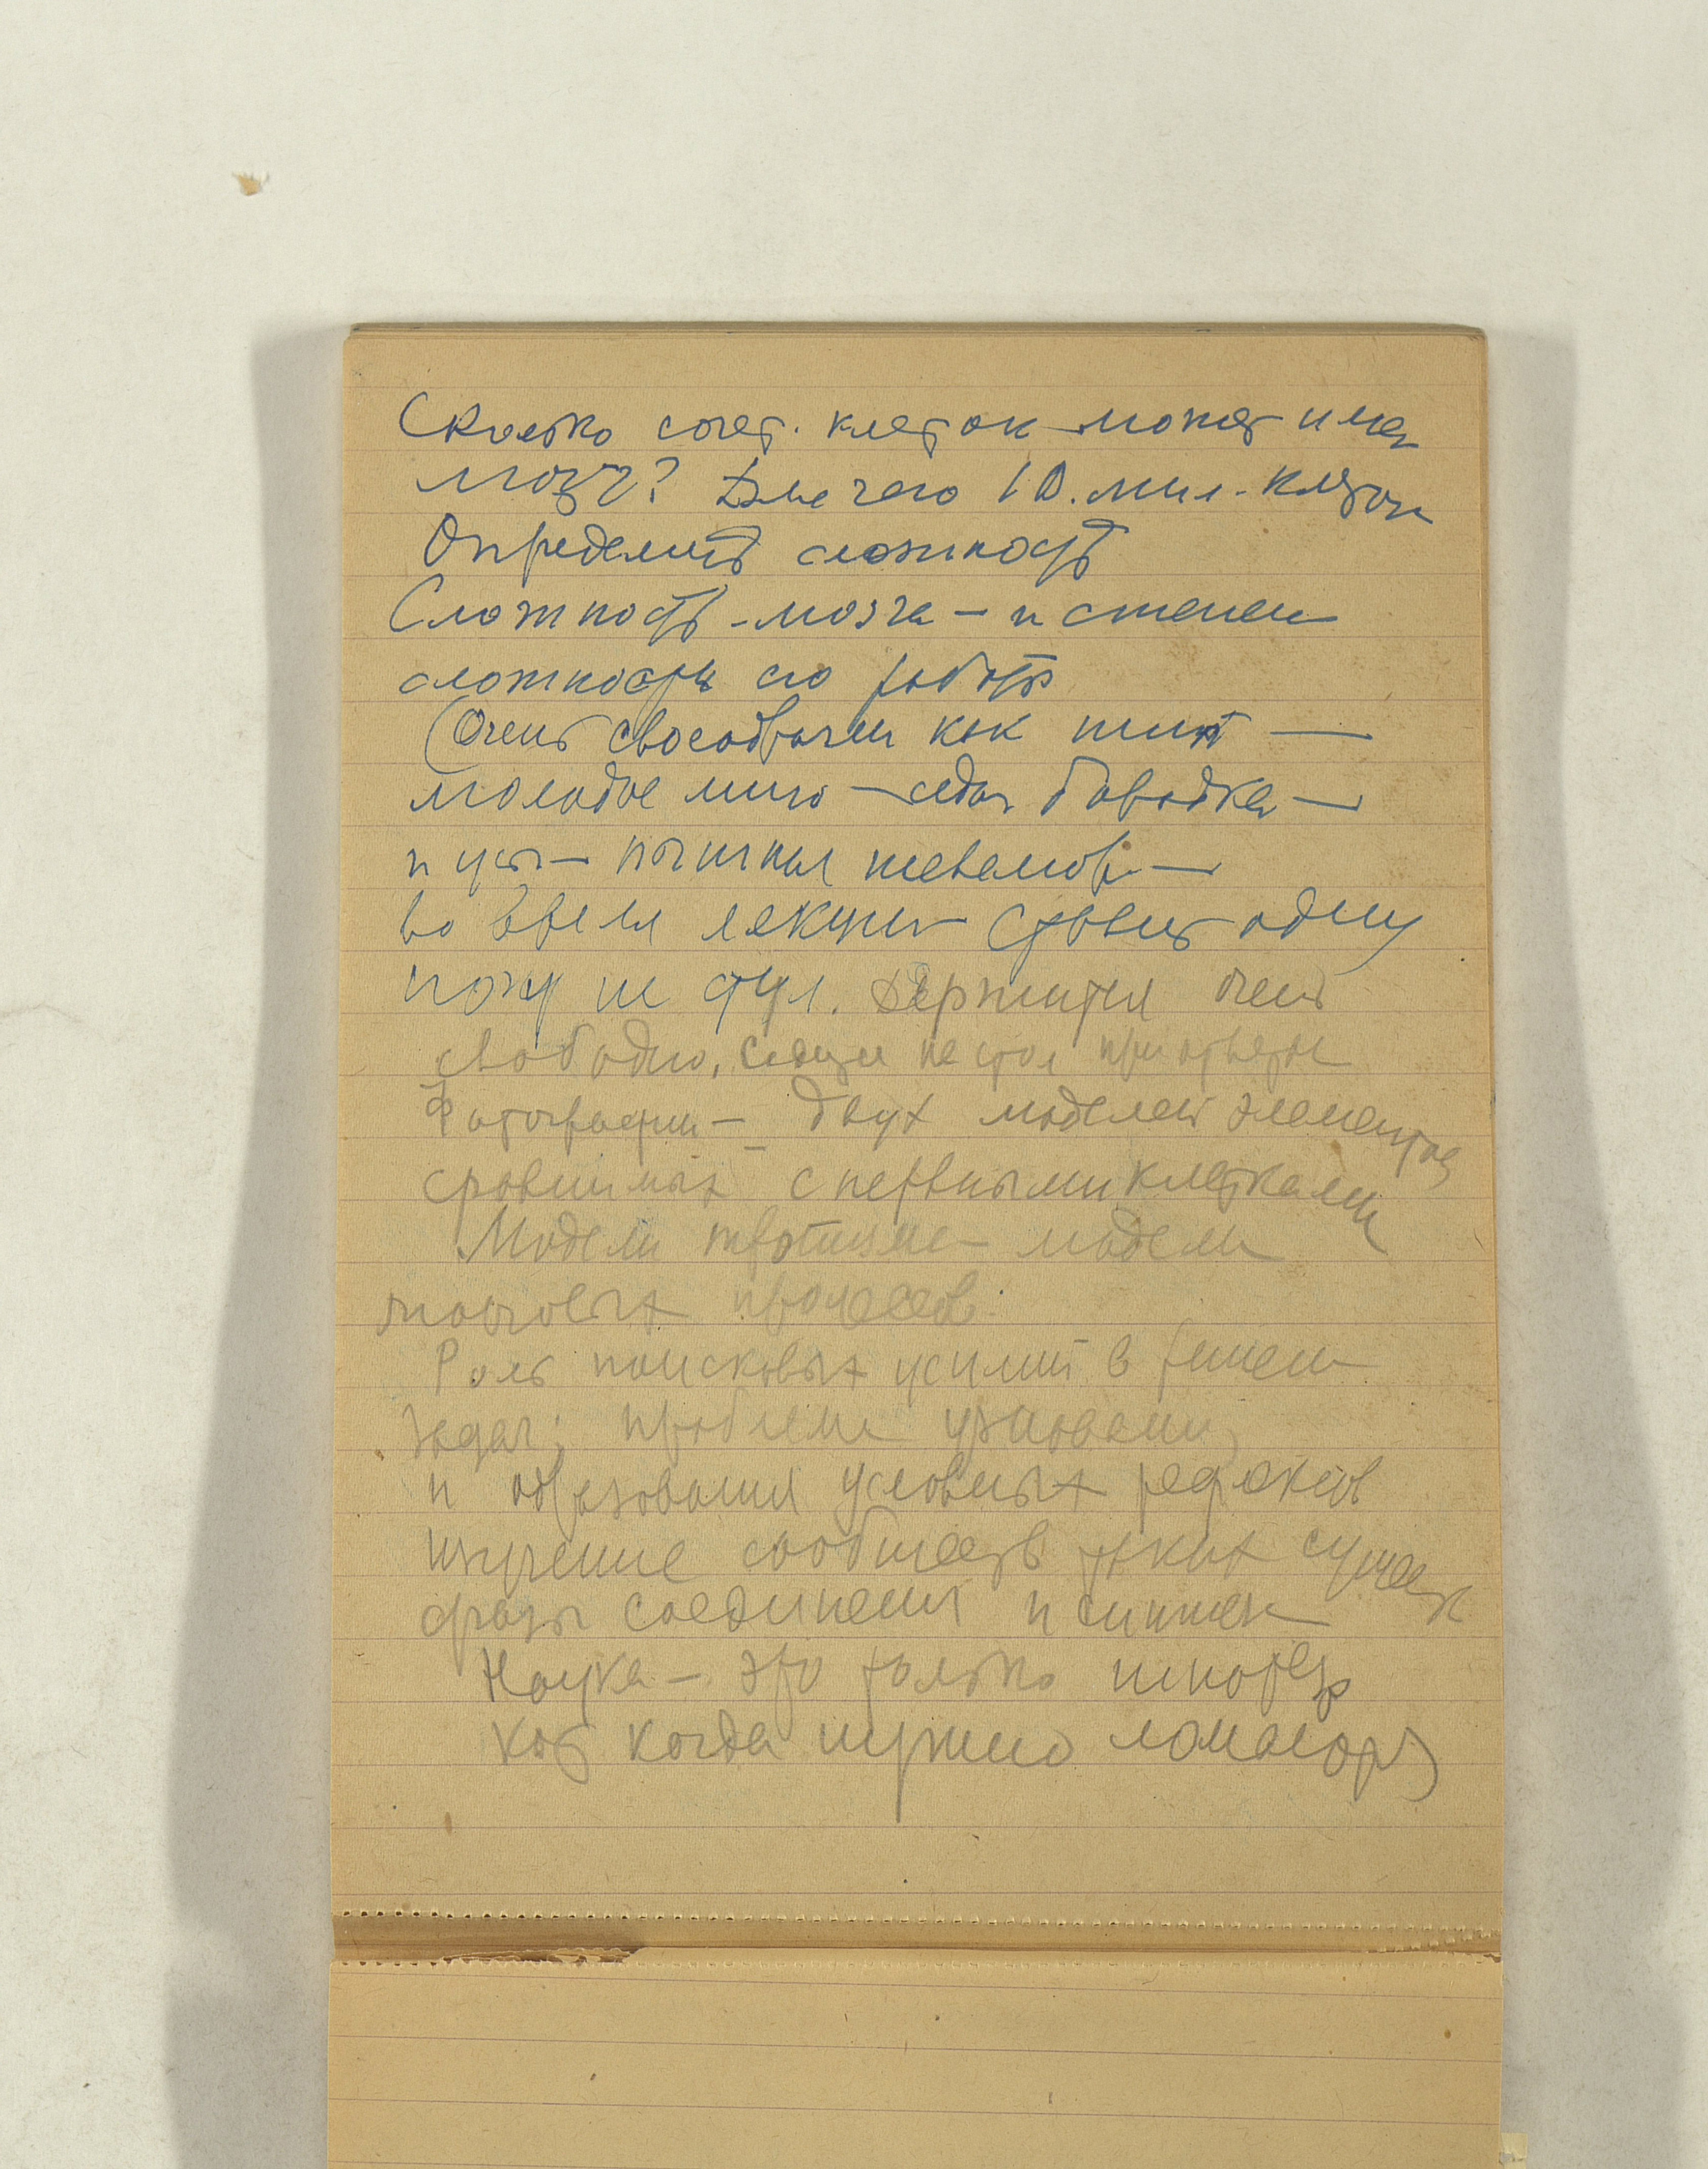 Сколько сочет. клеток может имет
мозг? Для чего 10. мил. клеток
Определить сложность
Сложность мозга — и степени
сложности его работы
(Очень своеобразен как тип —
молодое лицо — седая бородка —
и усы —
во время лекции ставит одну
ногу на стул. Держится очень
свободно, на стол
Фотографии — двух моделей элементов
сравнимых с нервными клетками
Модели — модели
мозговых процессов.
Роль поисковых усилий в решении
задач; проблема узнавания,
и образования условных рефлексов
изучение сообществ таких существ
фразы соединения и
Наука — это только
кот когда нужно